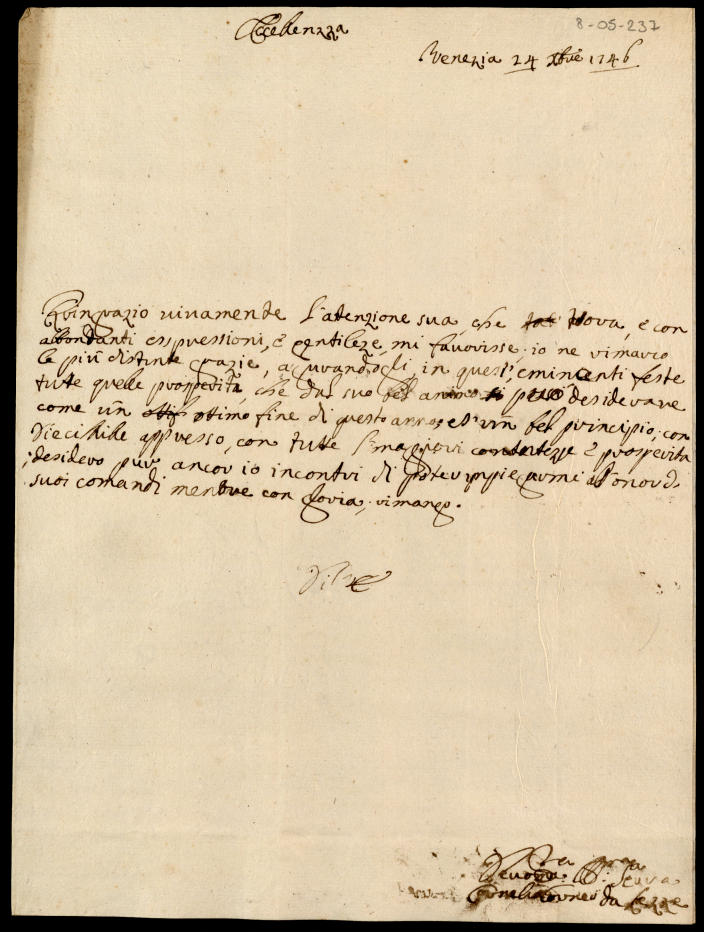 8-05-237
Eccellenzza
Venezia 24 Xbre 1746
Ringrazio vivamente l'atenzione sua, che trova, e con
abbondanti esspressioni, e gentileze, mi favorisse; io ne rimarco
le più distinte grazie, agurandogli, in questi, eminenti feste
tute quelle prosperità, che dal suo bel animo si può desiderare
come un otimo fine di questo anno, et un bel principio, con
Dieci Mille appresso, con tute l'magiori contenteze e prosperità
; desidero pur ancor io incontri di poter impiegarmi all'onor di
suoi comandi mentre con gloria, rimango.
Di V E
Devota Serva
Cornelia da Lezze